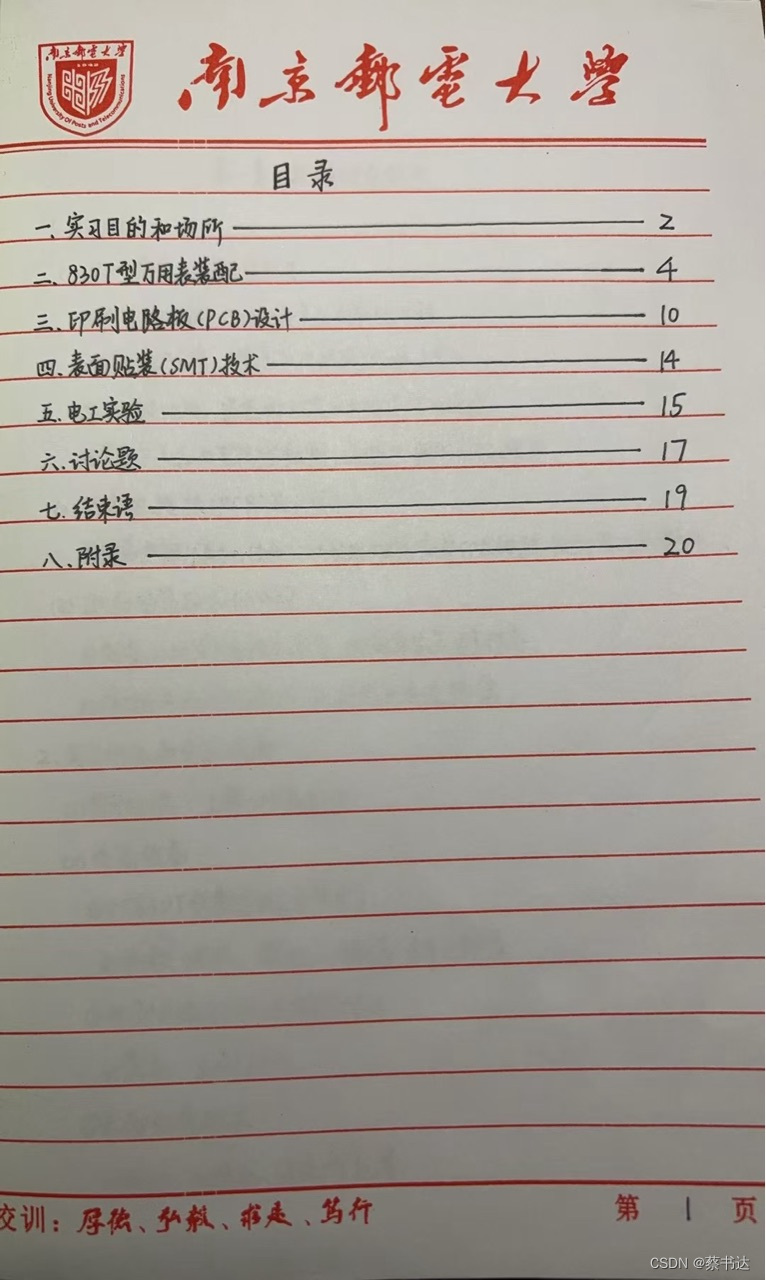 南京郵電大學
Nanjing University Of Posts and Telecommunications
南京郵電大學
目录
一、实习目的和场所 2
二、830T型万用表装配 4
三、印刷电路板(PCB)设计 10
四、表面贴装(SMT)技术 14
五、电工实验 15
六、讨论题 17
七、结束语 19
八、附录 20
校训：厚德、弘毅、求是、笃行
第 1 页
CSDN @蔡书达